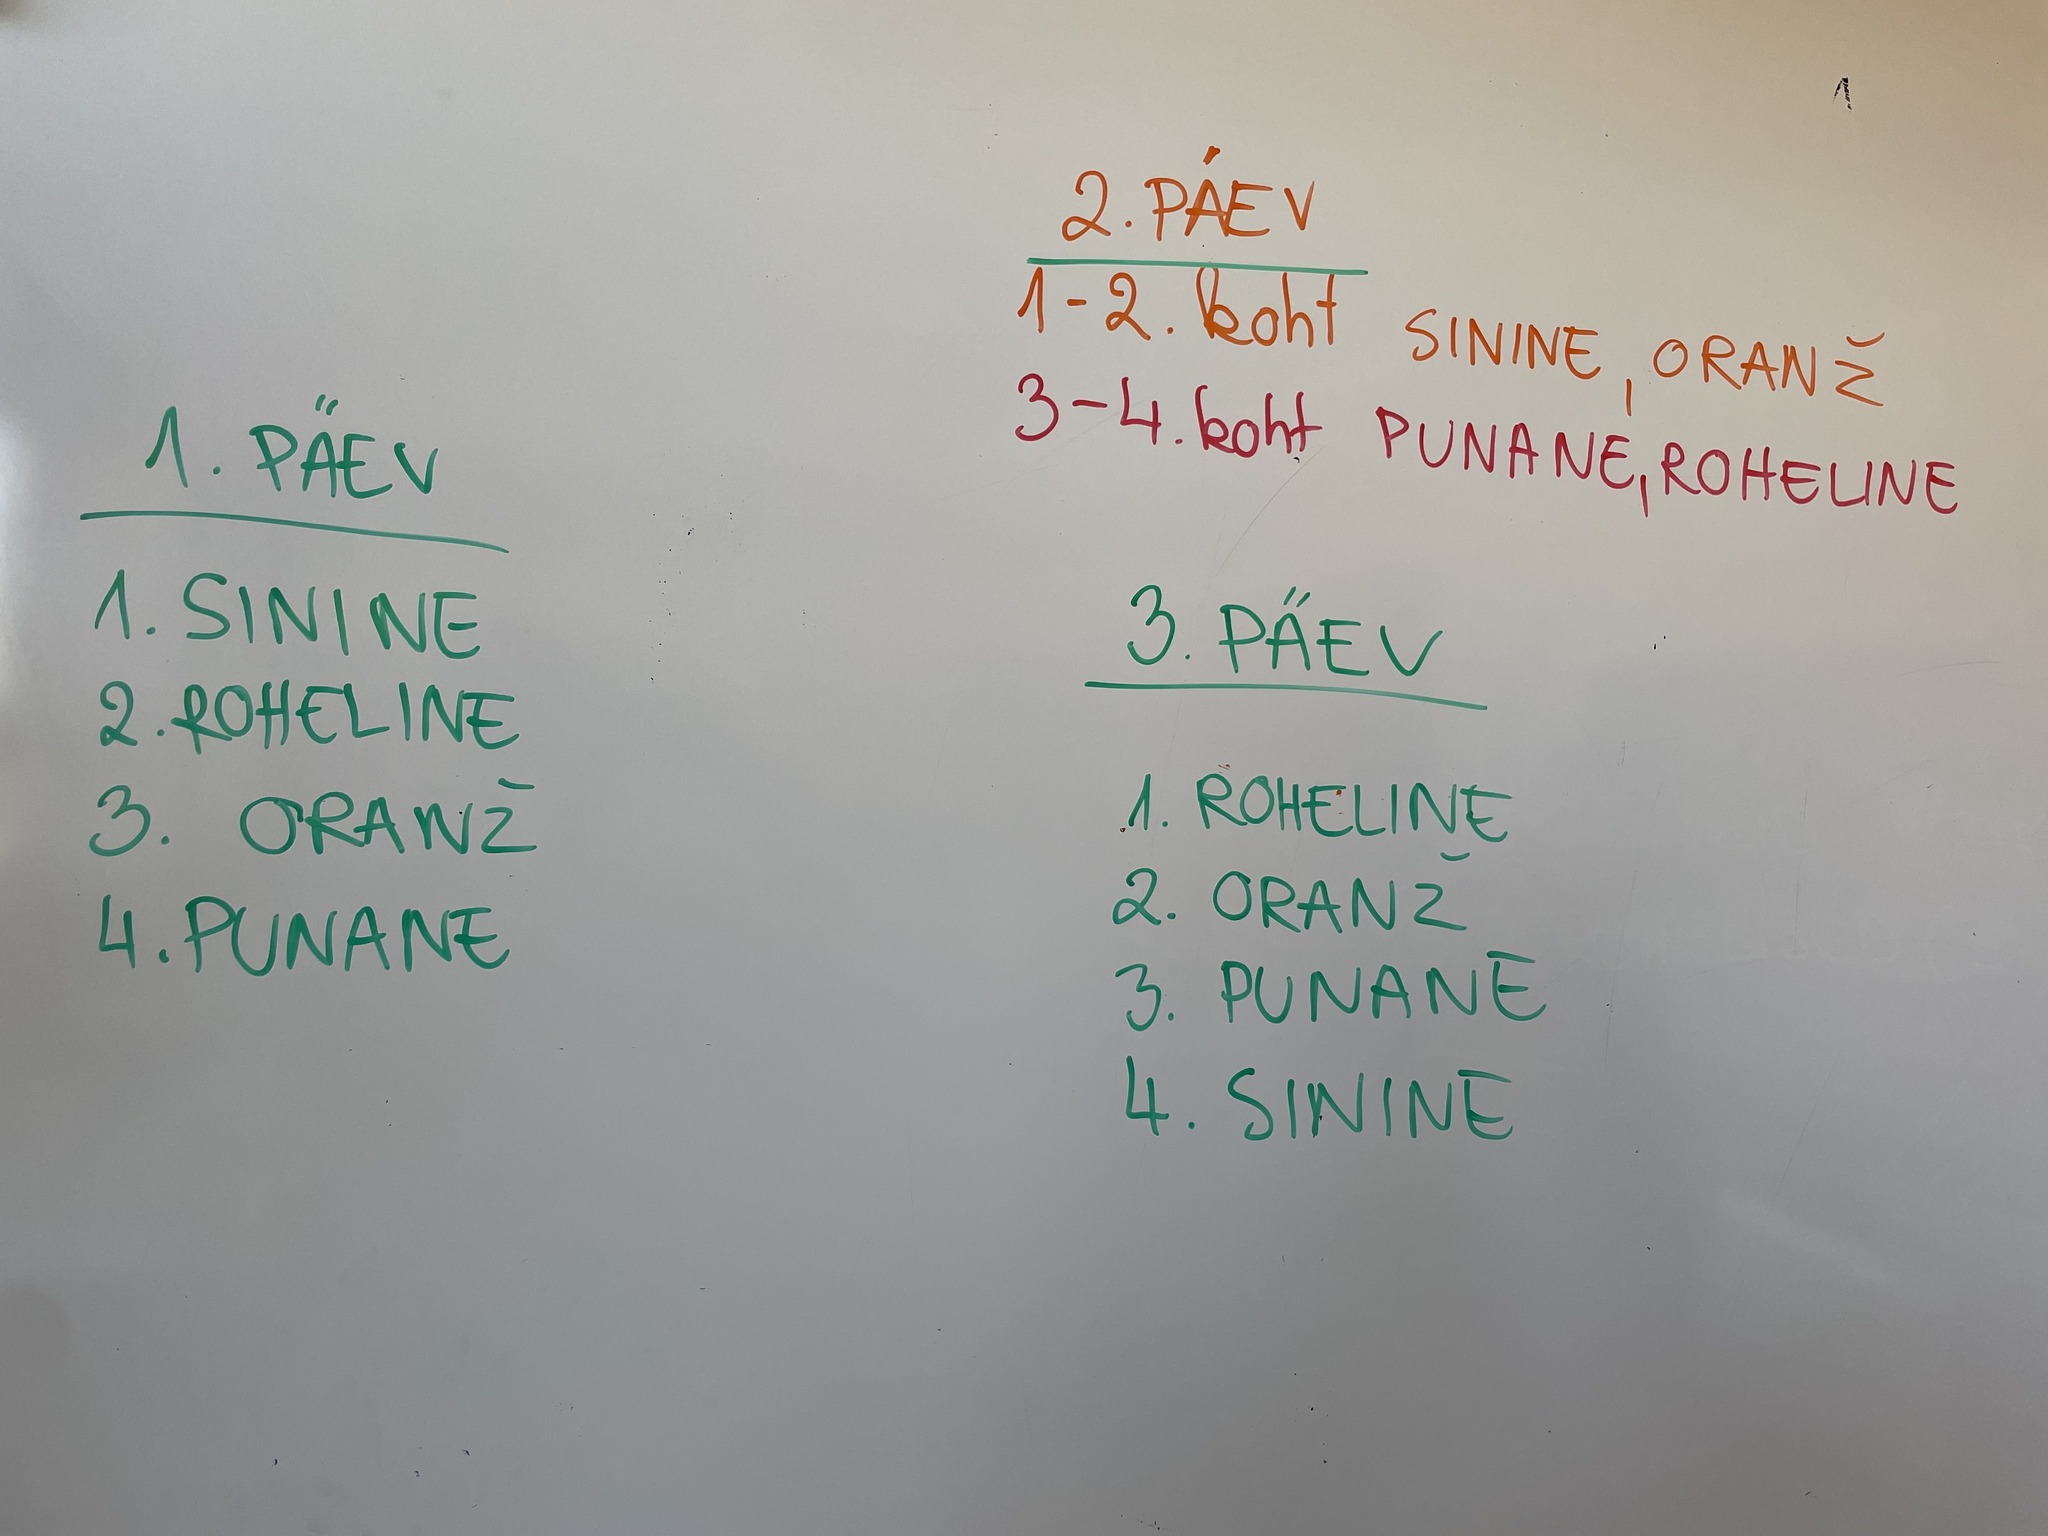 1. PÄEV
1. SININE
2. ROHELINE
3. ORANŽ
4. PUNANE
2. PÄEV
1-2. koht SININE, ORANŽ
3-4. koht PUNANE, ROHELINE
3. PÄEV
1. ROHELINE
2. ORANŽ
3. PUNANE
4. SININE